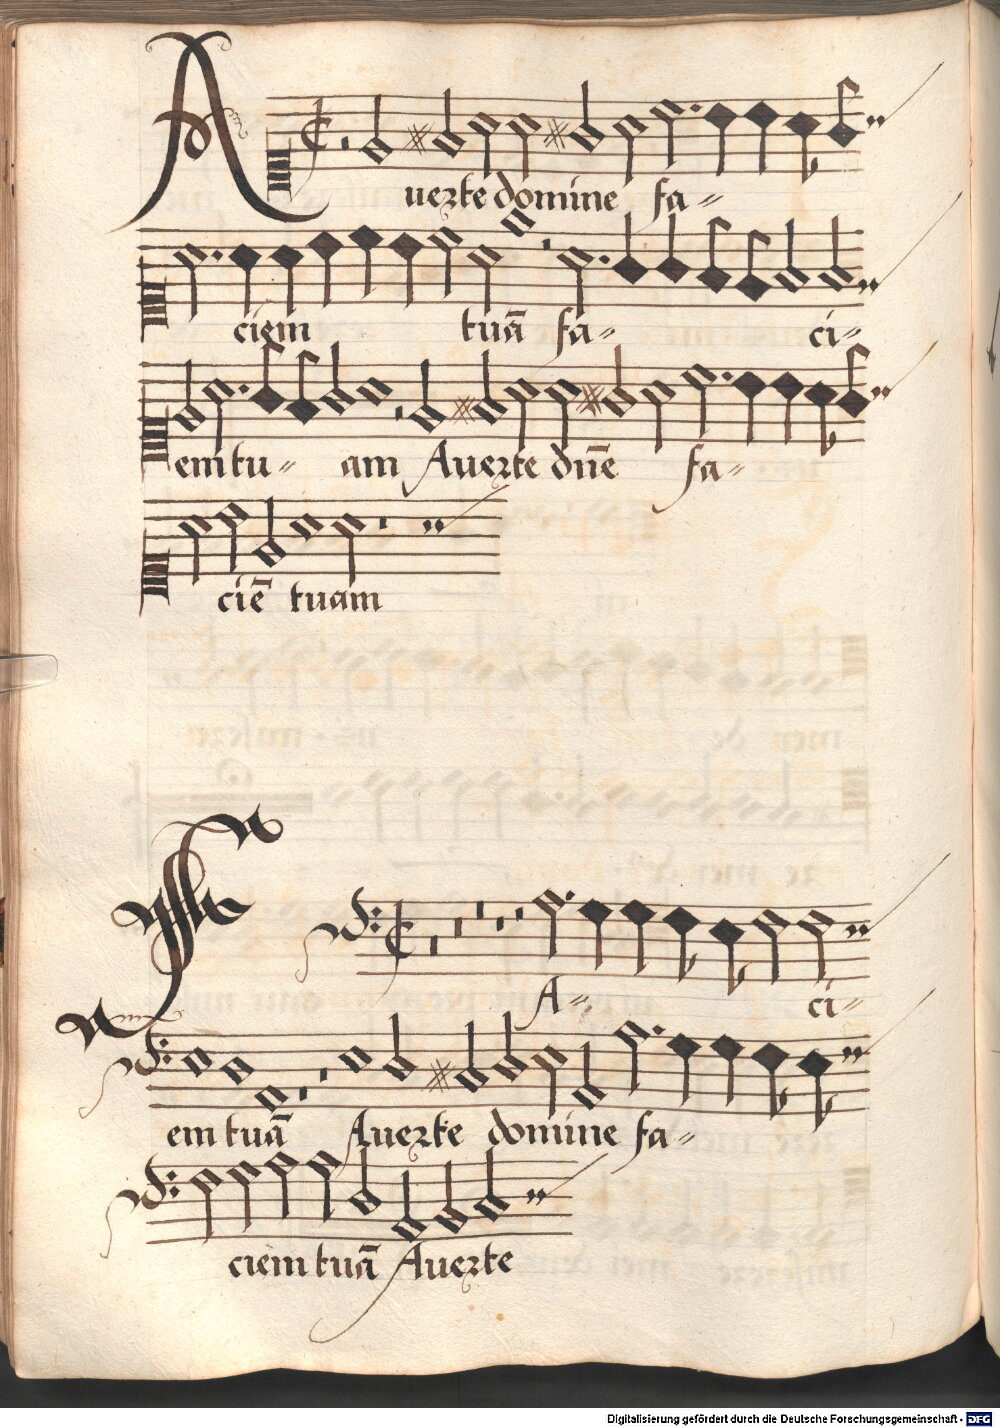 Auerte domine fa-
ciem tuā fa- ci-
em tu- am Auerte dn̄e fa-
ciē tuam
A- ci-
em tuā Auerte domine fa-
ciem tuā Auerte
Digitalisierung gefördert durch die Deutsche Forschungsgemeinschaft - DFG